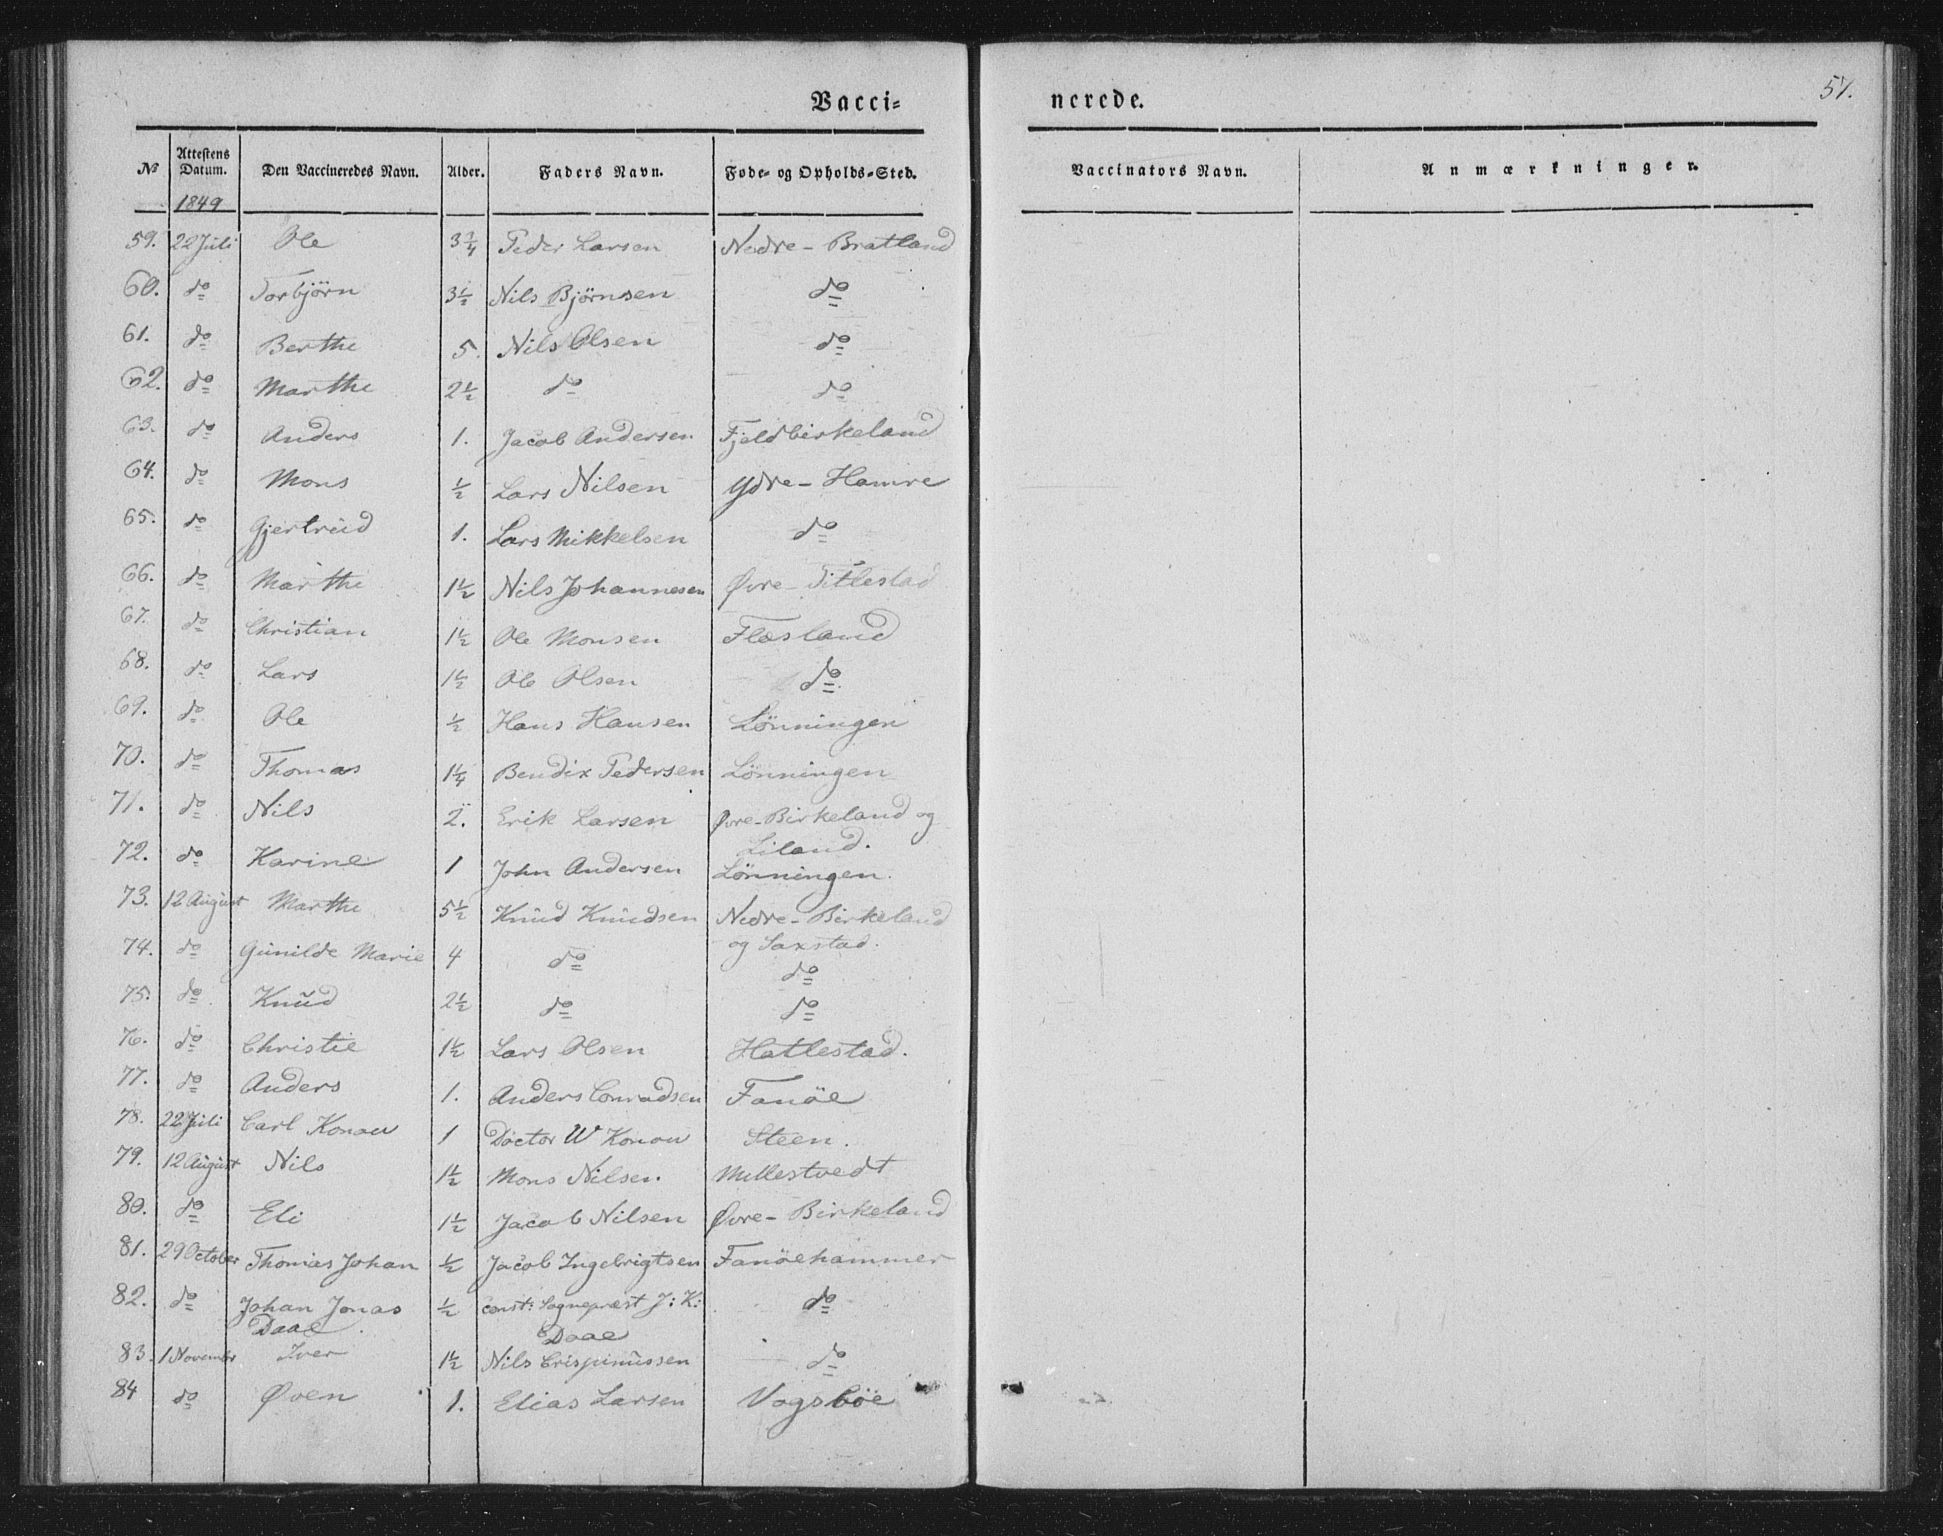 Vacci=
nerede.
57.
No
Attestens Datum.
Den Vaccineredes Navn.
Alder.
Faders Navn.
Føde- og Opholds-Sted.
Vaccinators Navn.
Anmærkninger.
1849
59. 22 Juli Ole 3 1/4 Peder Larsen Nedre-Bratland
60. do Torbjörn 3 1/2 Nils Björnsen do
61. do Berthe 5. Nils Olsen do
62. do Marthe 2 1/2 do do
63. do Anders 1. Jacob Andersen Fjeldbirkeland
64. do Mons 1/2 Lars Nilsen Ydre-Hamre
65. do Gjertrüd 1. Lars Mikkelsen do
66. do Marthe 1 1/2 Nils Johannesen Øvre-Titlestad
67. do Christian 1 1/2 Ole Monsen Flæsland
68. do Lars 1 1/2 Ole Olsen do
69. do Ole 1/2 Hans Hansen Lönningen
70. do Thomas 1 1/4 Bendix Pedersen Lönningen
71. do Nils 2. Erik Larsen Øvre-Birkeland og
Liland.
72. do Karine 1 John Andersen Lönningen.
73. 12 August Marthe 5 1/2 Knüd Knüdsen Nedre-Birkeland
og Saxstad.
74. do Günilde Marie 4 do do
75. do Knüd 2 1/2 do do
76. do Christie 1 1/2 Lars Olsen Hatlestad.
77. do Anders 1. Anders Conradsen Fanöe
78. 22 Juli Carl Konow 1 Doctor W Konow Steen.
79. 12 August Nils 1 1/2 Mons Nilsen. Millestvedt
80. do Eli 1 1/2 Jacob Nilsen Øvre-Birkeland
81. 29 October Thomas Johan 1/2 Jacob Ingebrigtsen Fanöehammer
82. do Johan Jonas 1/2 const: Sognepræst J: K: do
Daae. Daae
83. 1 Novembr Iver 1 1/2 Nils Crispinüssen do
84 do Øven 1. Elias Larsen Vogsböe